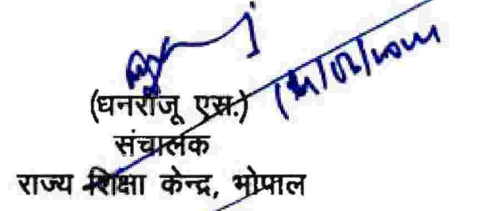 (धनराजू एस.)
संचालक
राज्य शिक्षा केन्द्र, भोपाल